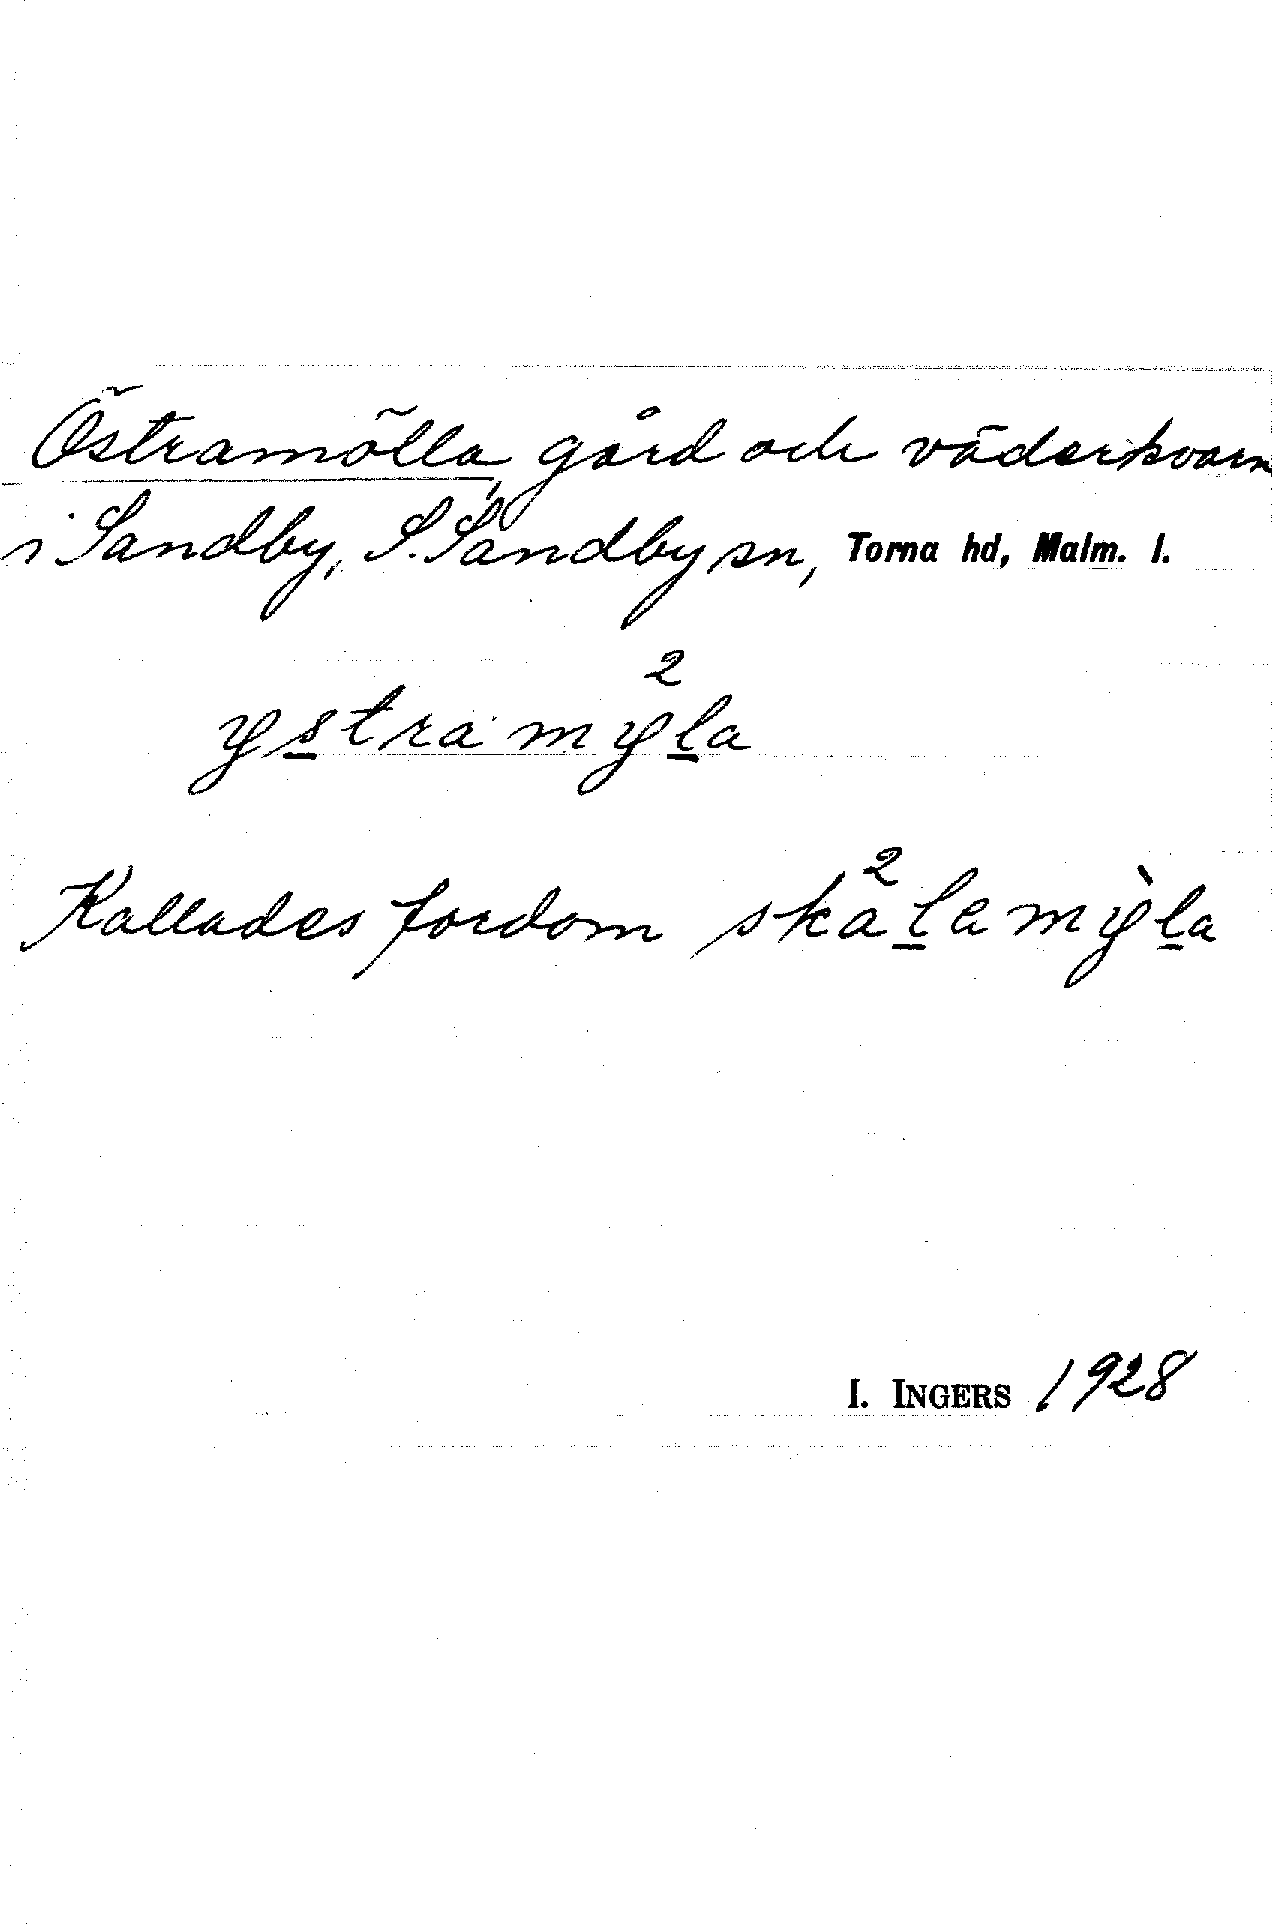 Östramölla, gård och väderkvarn
i Sandby, S. Sandby sn, Torna hd, Malm. l.
ys̲tramy²l̲a
Kallades fordom ska²l̲amỳl̲a
I. INGERS 1928